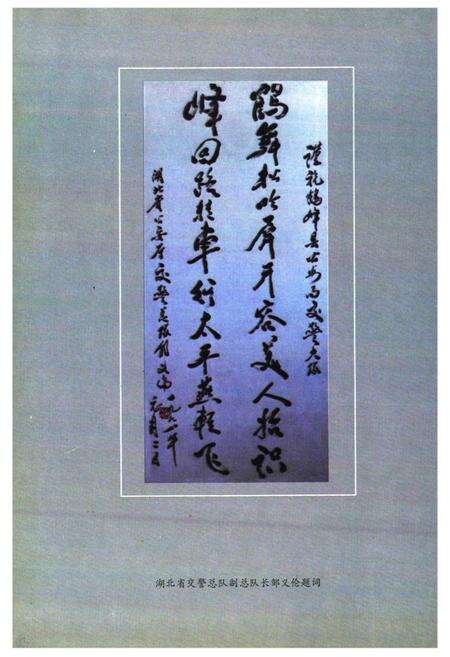 鹤峰县公安局交警大队
鹤舞松吟屏开容美人识
峰回路转车行太平燕轻飞
湖北省公安厅交警总队邹义伦
一九九一年
湖北省交警总队副总队长邹义伦题词